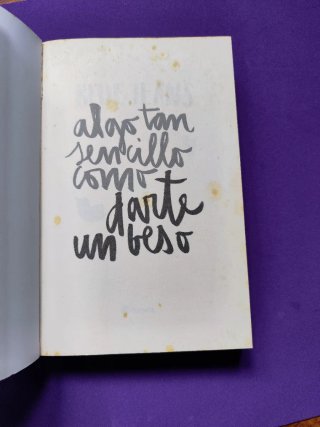 algo tan
sencillo
como
darte
un beso